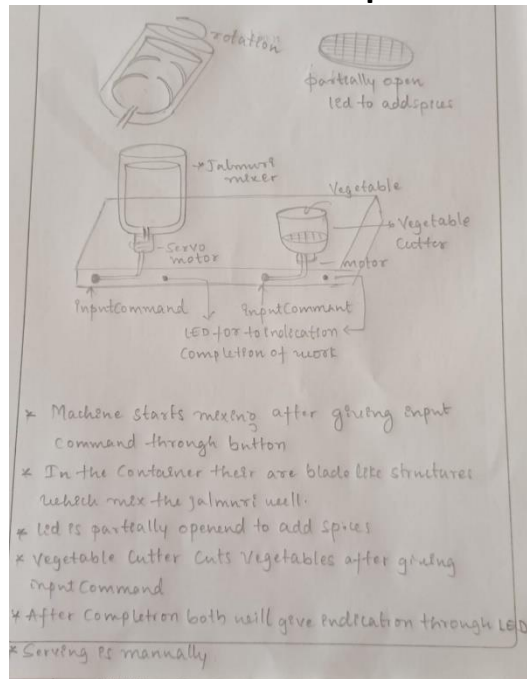 rotation
partially open
led to addspices
Jalmuri
mixer
Vegetable
Vegetable
Cutter
Servo
motor
motor
InputCommand
InputCommant
LED for to Indication
Completion of work
* Machine starts mixing after giving input
command through button
* In the Container their are blade like structures
which mix the jalmuri well.
* led is partially openend to add spices
* vegetable Cutter Cuts Vegetables after giving
input Command
* After Completion both will give indication through LED
* Serving is mannally